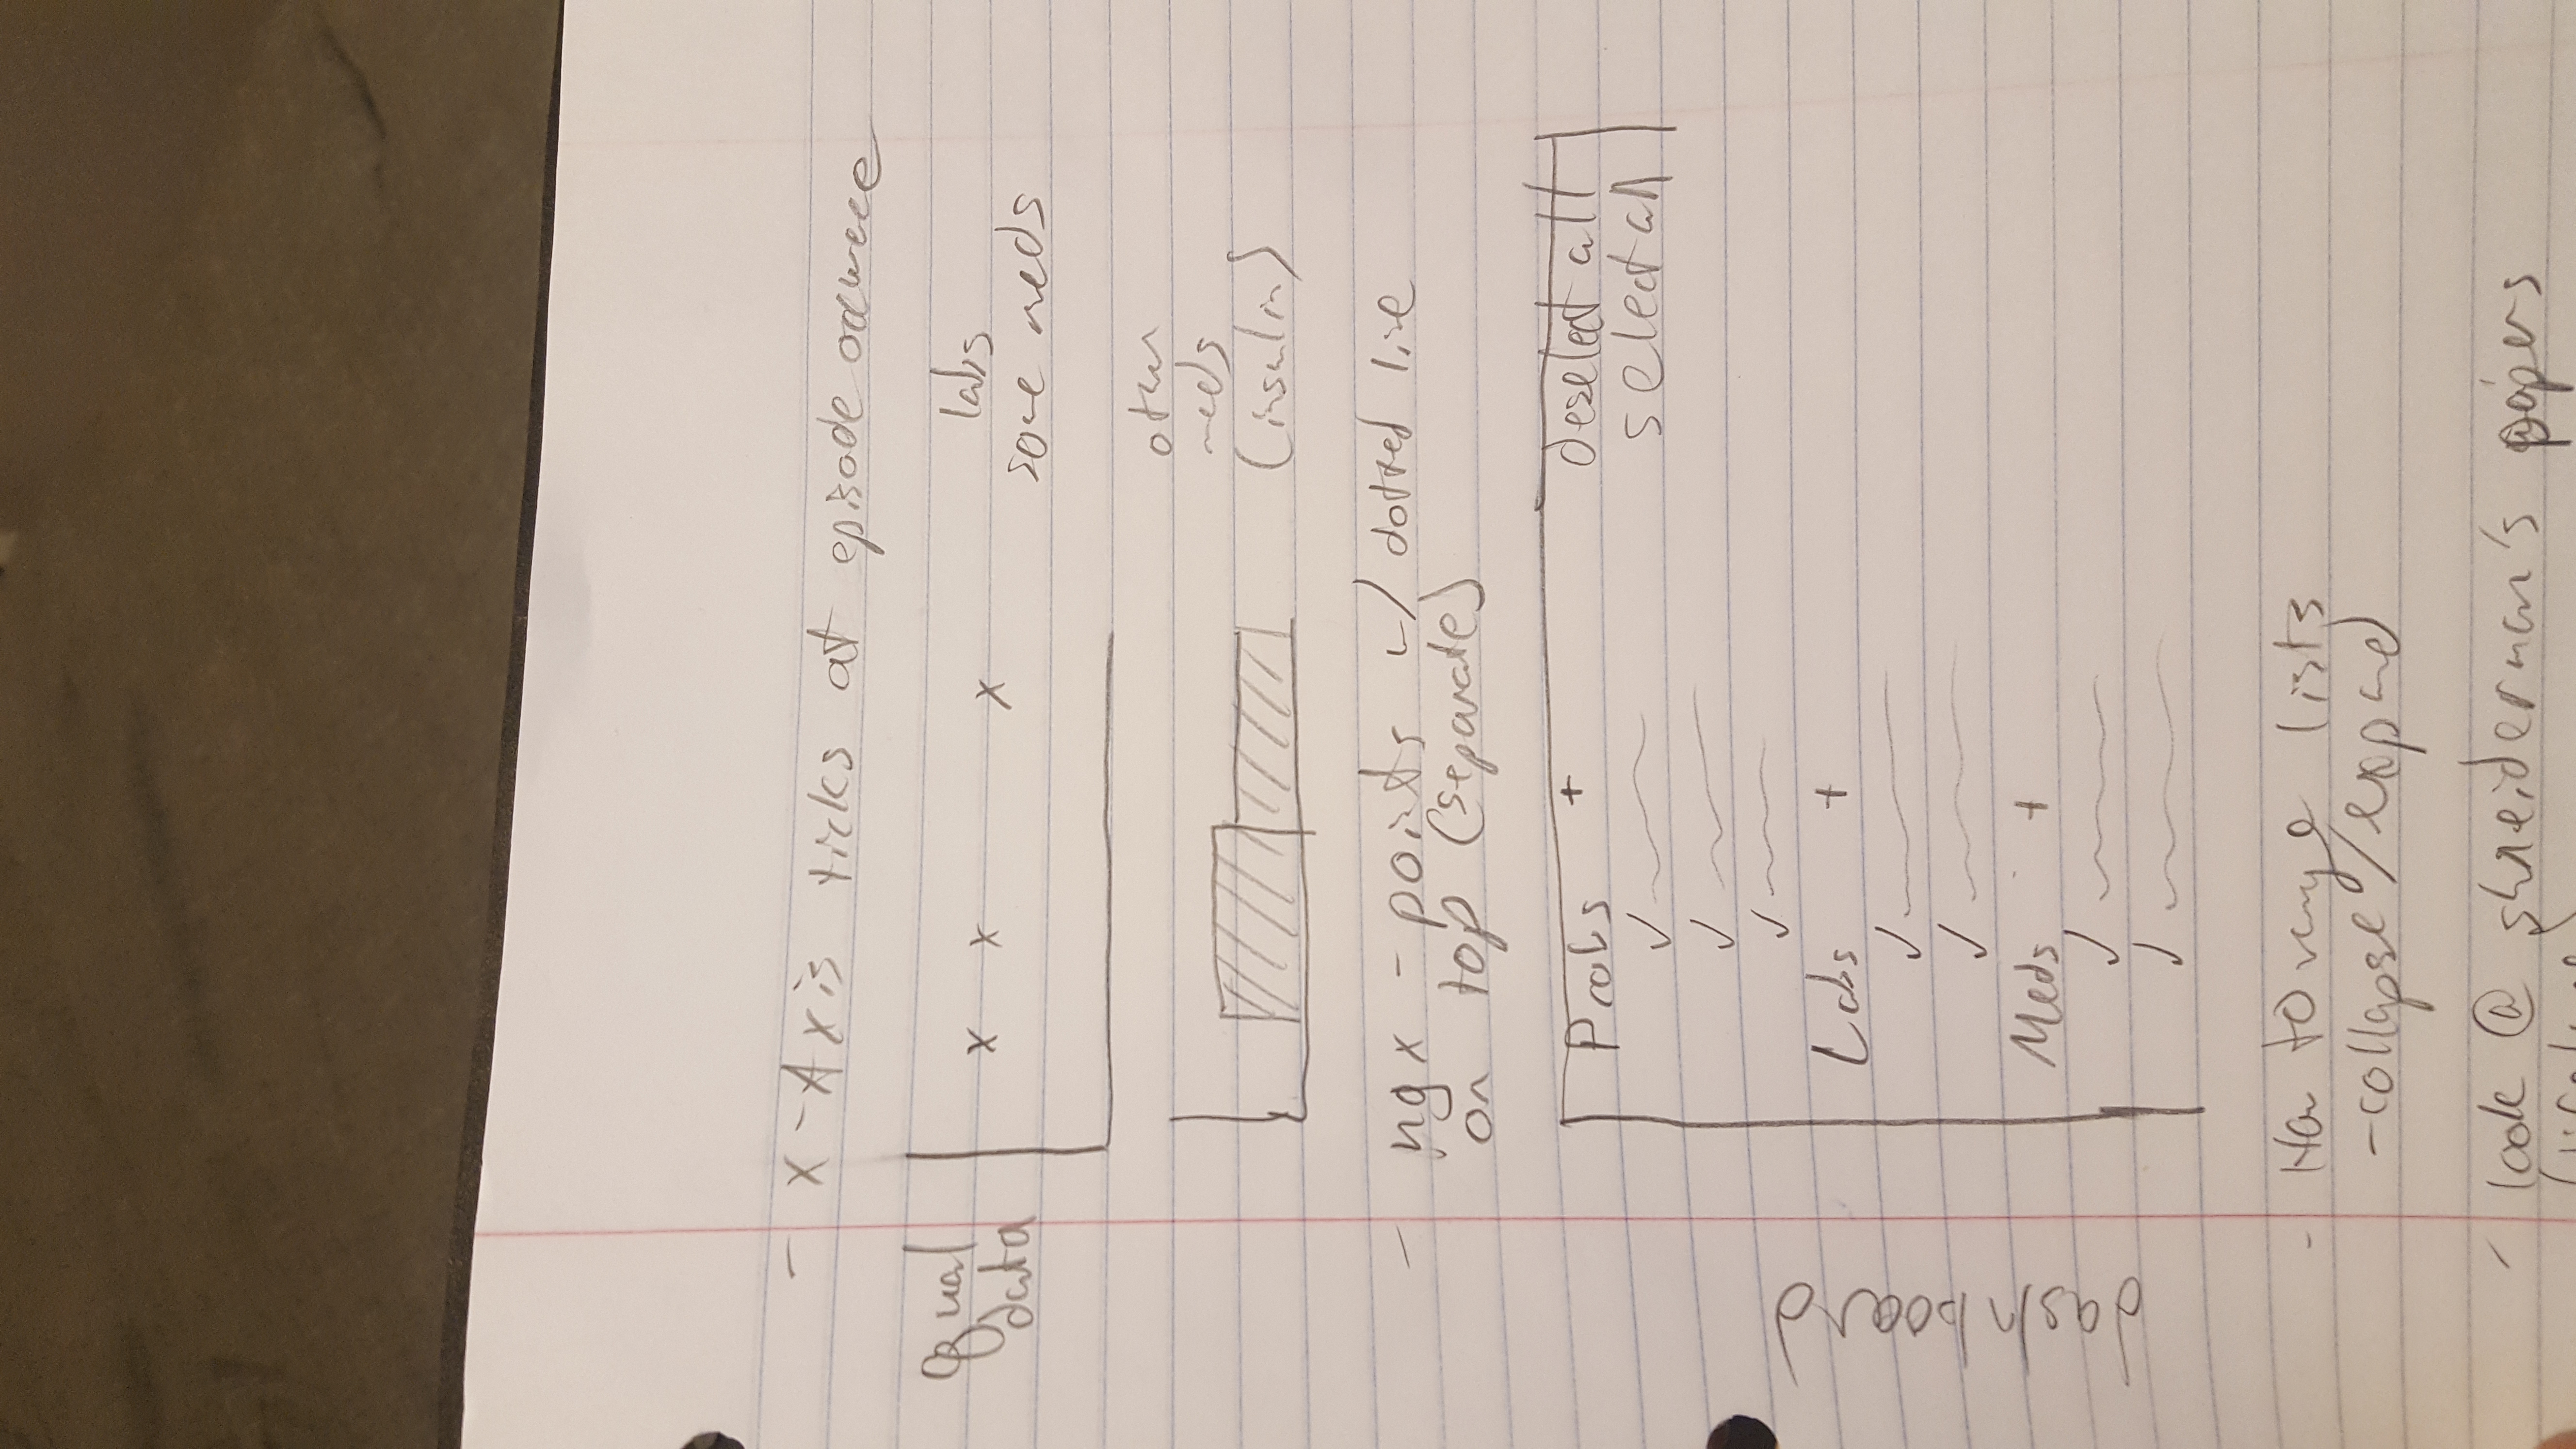 - X-Axis ticks at episode
qual
data
x x x
labs
some meds
other
meds
(insulin)
- ngx - points w/ dotted line
on top (separate)
Probs +
deselect all
select all
✓
✓
✓
Labs +
✓
✓
Meds +
✓
✓
dashboard
- to lists
- collapse/expand
- look @ shneiderman's papers